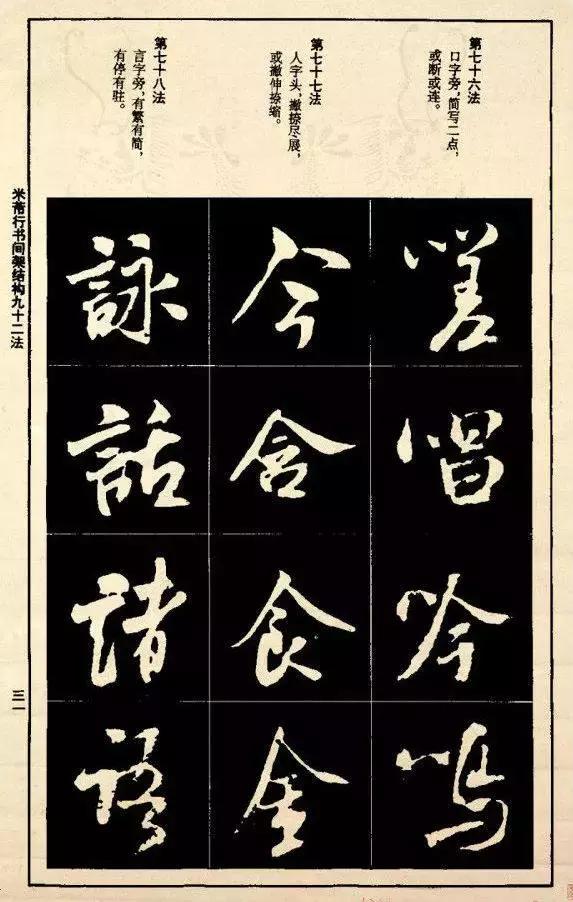 第七十六法
口字旁，简写二点，
或断或连。
嗟
唱
吟
鸣
第七十七法
人字头，撇捺尽展，
或撇伸捺缩。
今
含
食
金
第七十八法
言字旁，有繁有简，
有停有驻。
詠
話
諸
語
米芾行书间架结构九十二法
三一